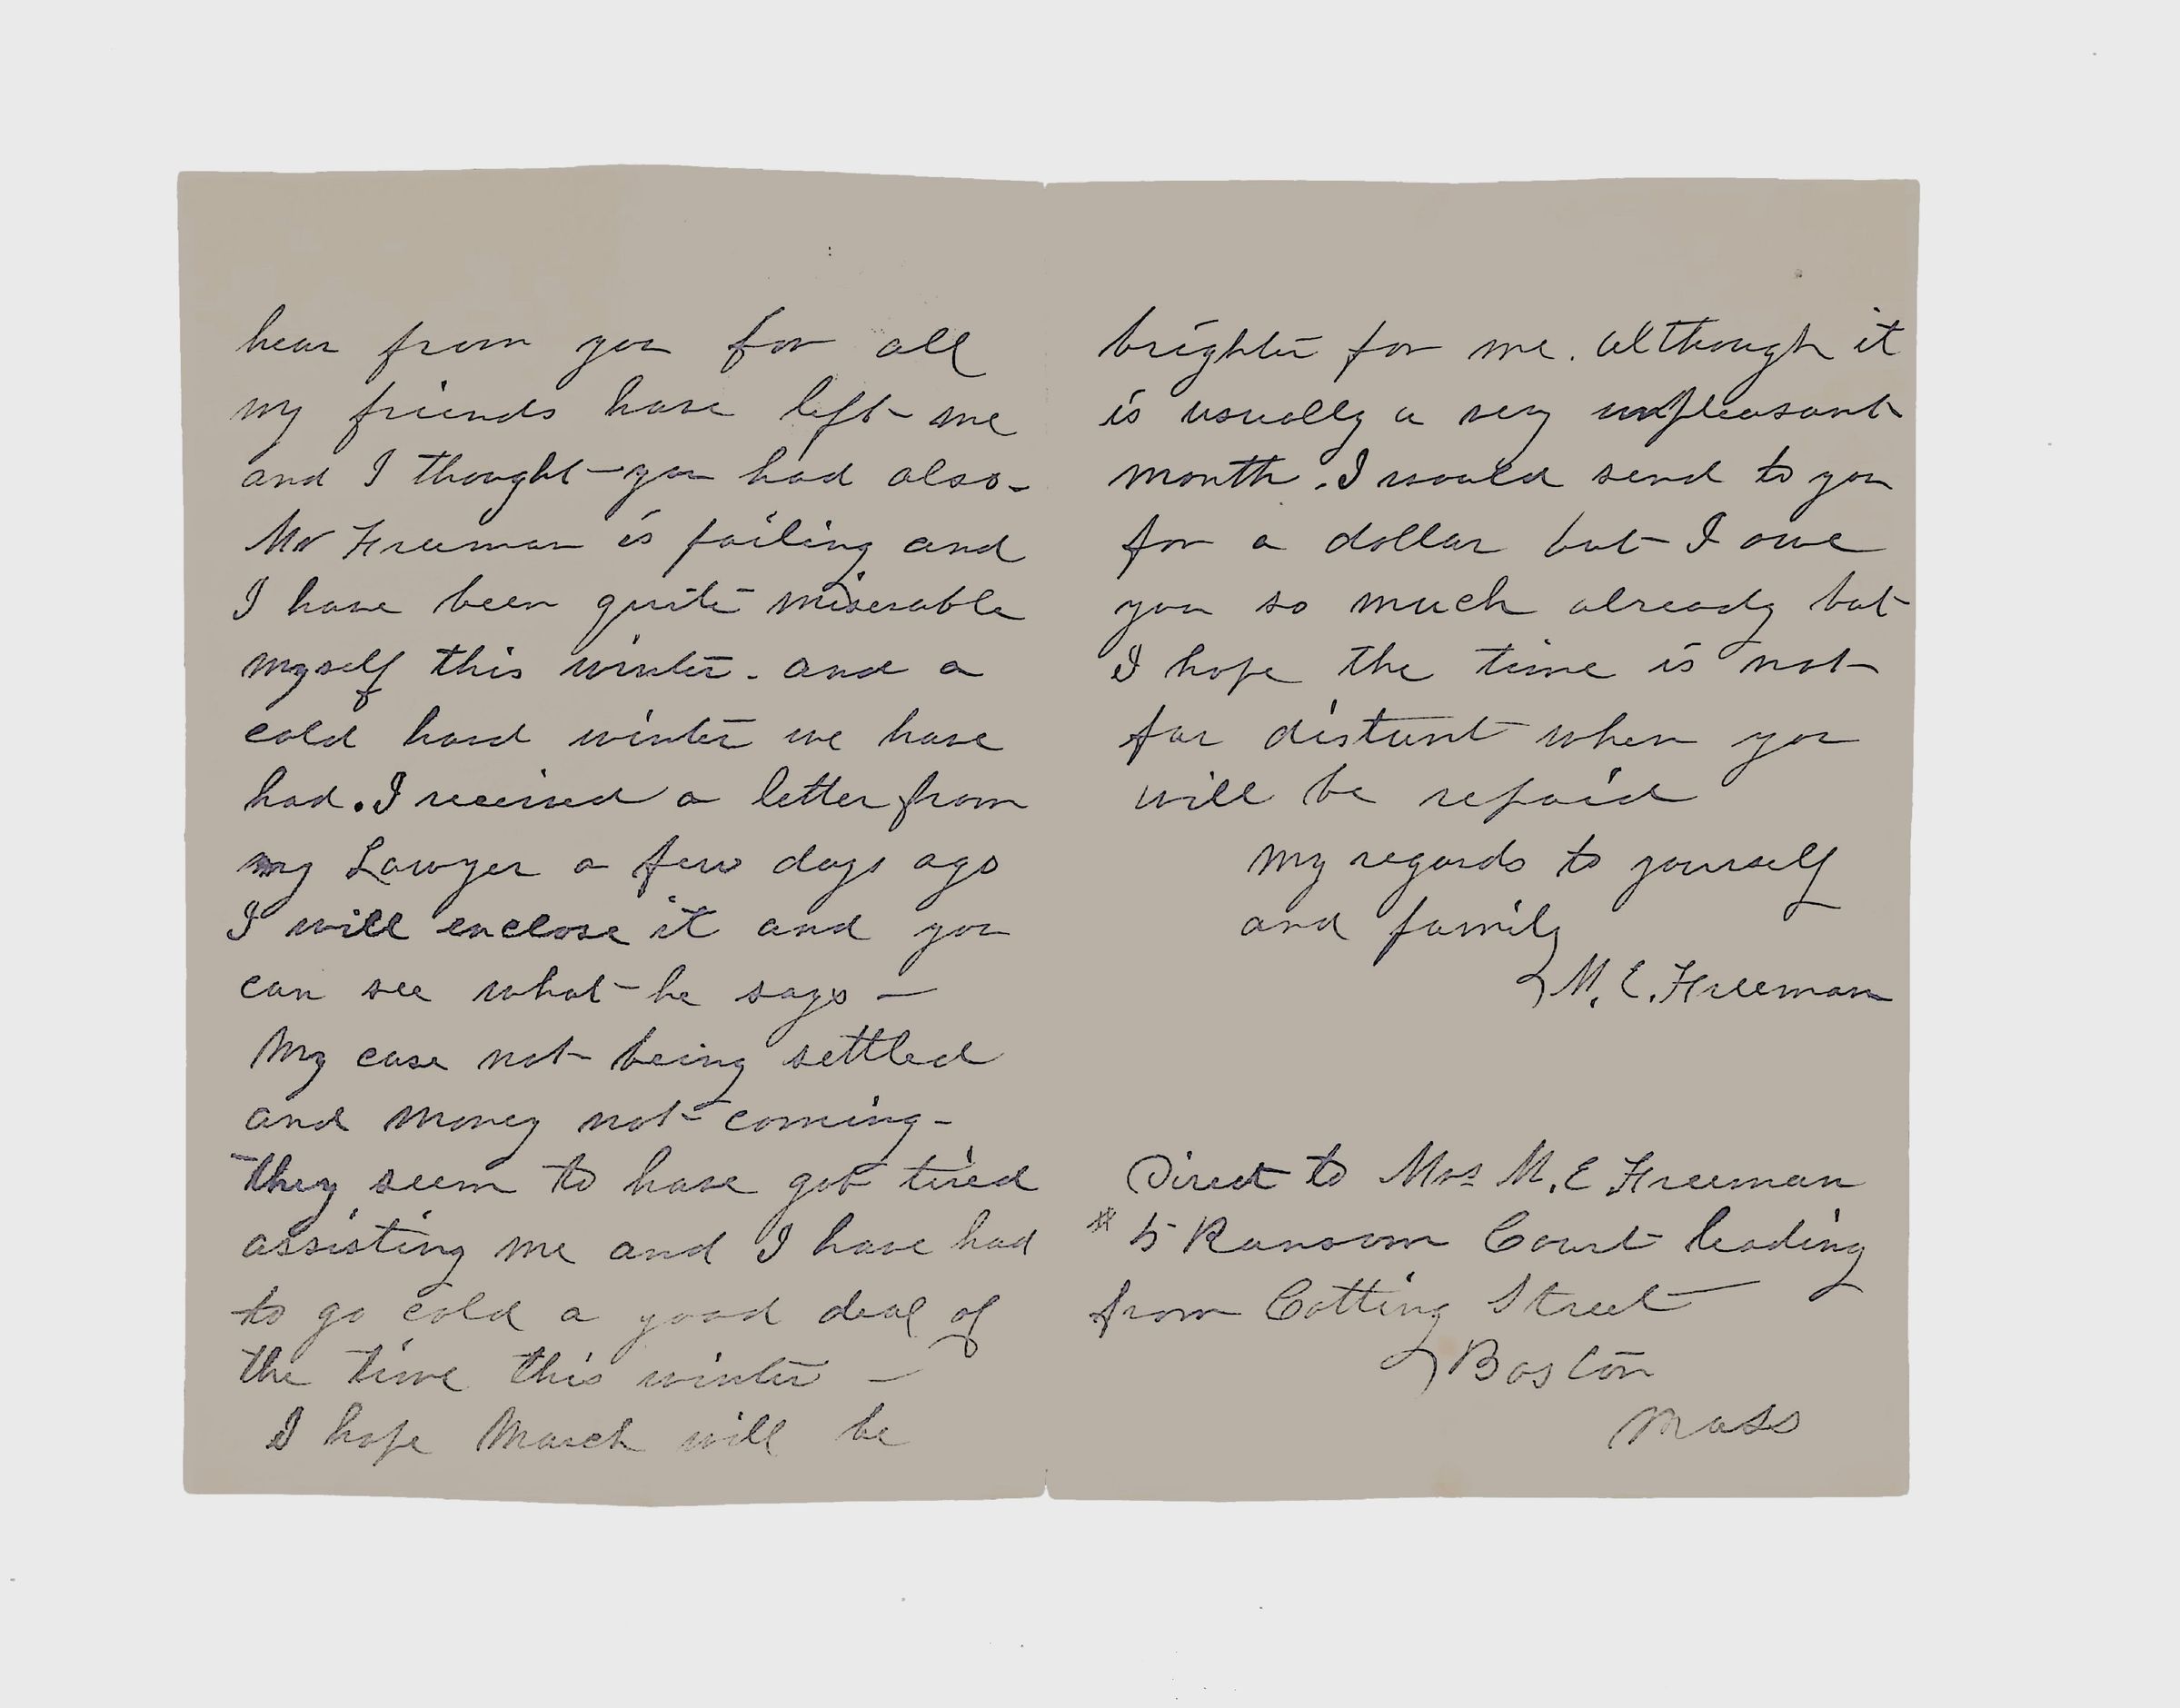 hear from you for all
my friends have left me
and I thought you had also -
Mr Freeman is failing and
I have been quite miserable
myself this winter - and a
cold hard winter we have
had. I received a letter from
my Lawyer a few days ago
I will enclose it and you
can see what he says -
My case not being settled
and money not coming -
they seem to have got tired
assisting me and I have had
to go cold a good deal of
the time this winter -
I hope March will be
brighter for me. Although it
is usually a very unpleasant
month. I would send to you
for a dollar but I owe
you so much already but
I hope the time is not
far distant when you
will be repaid
My regards to yourself
and family
M. E. Freeman
Direct to Mrs M. E Freeman
# 5 Ransom Court leading
from Cotting Street
Boston
Mass